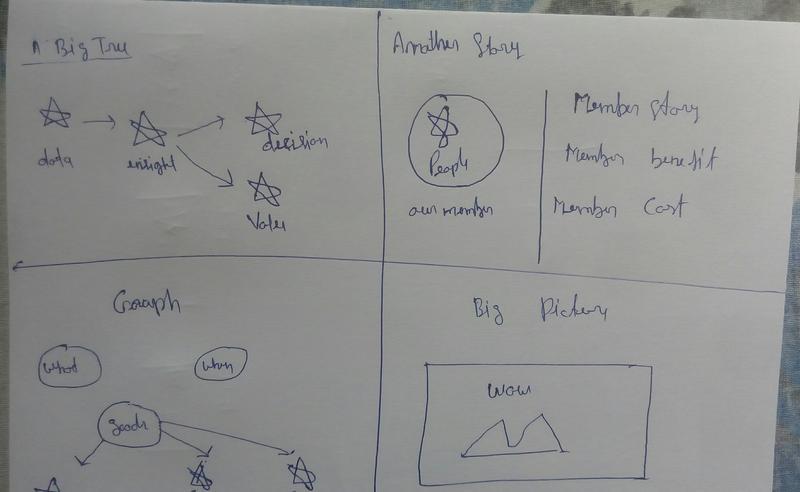 A Big Tree
data
insight
decision
Valu
Another Story
People
our member
Member Story
Member benefit
Member Cost
Graph
what
when
goods
Big Pictury
WOW